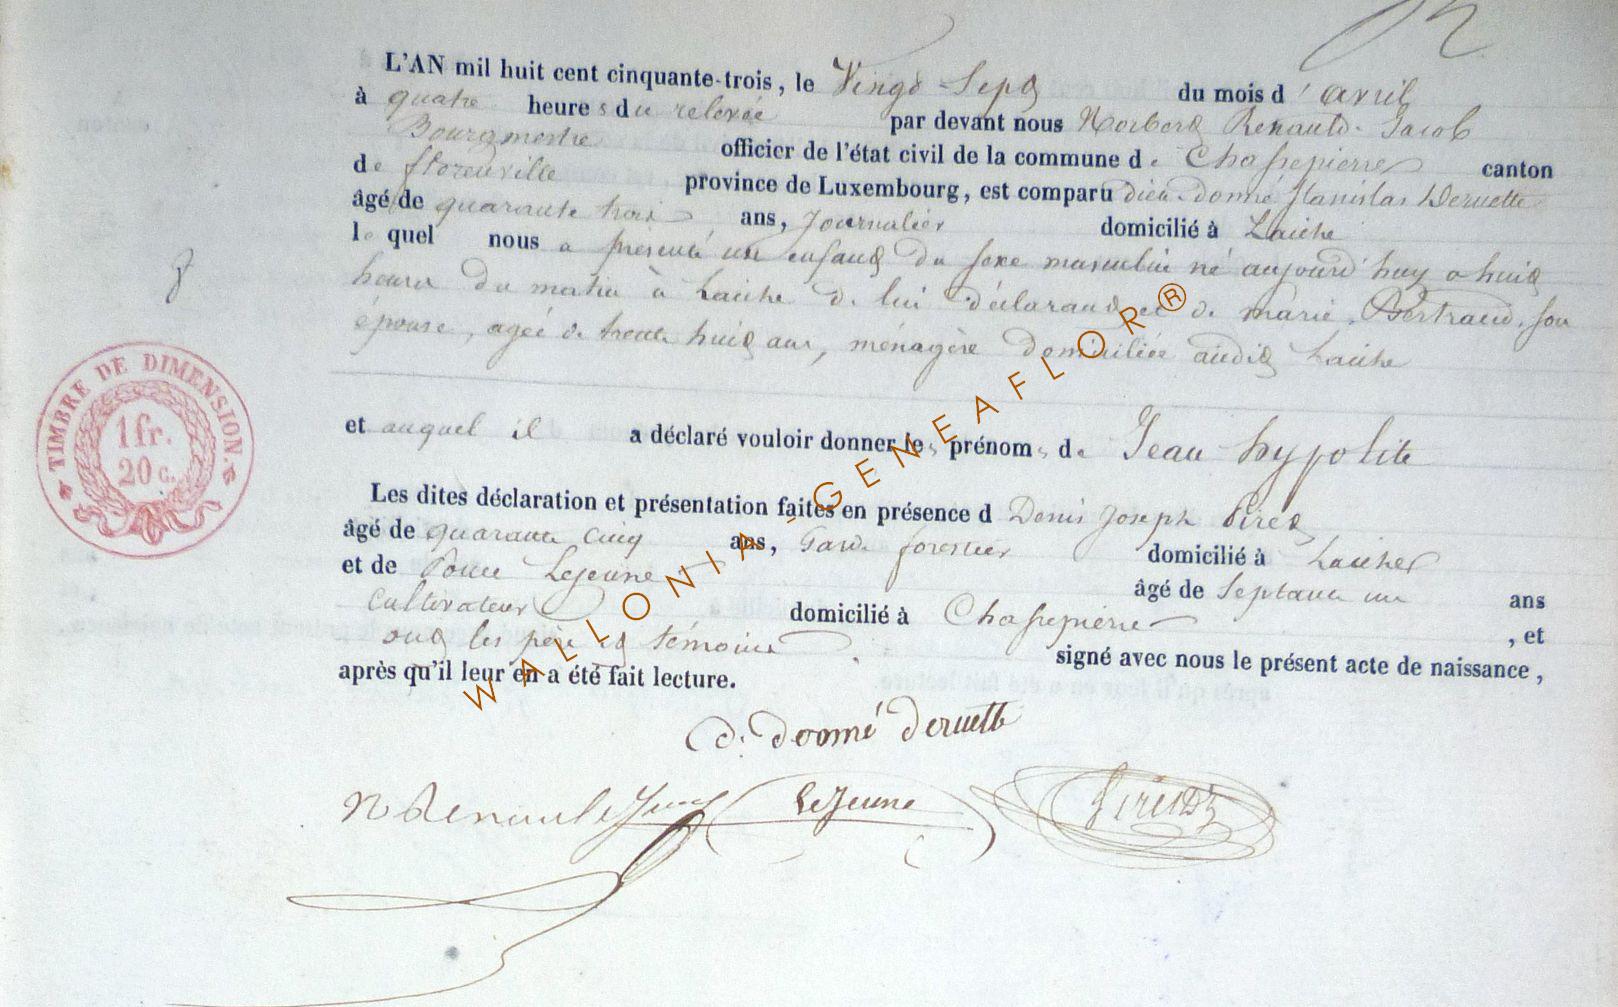 L'AN mil huit cent cinquante-trois, le Vingt Sept du mois d'avril
à quatre heures du relevée par devant nous Norbert Renauld-Jacob
Bourgmestre officier de l'état civil de la commune de Chassepierre canton
de florenville province de Luxembourg, est comparu dieu-donné Stanislas Deruette
âgé de quarante trois ans, Journalier domicilié à Laiche
le quel nous a présenté un enfant du sexe masculin né aujourd'huy a huit
heures du matin à Laiche de lui déclarant et de marie Bertrand son
épouse, agée de trente huit ans, ménagère domiciliée audit Laiche
et auquel il a déclaré vouloir donner les prénoms de Jean hypolite
Les dites déclaration et présentation faites en présence d Denis Joseph Piret
âgé de quarante cinq ans, Garde forestier domicilié à Laiche
et de Ponce Lejeune âgé de Septante un ans
Cultivateur domicilié à Chassepierre , et
ont les père et témoins signé avec nous le présent acte de naissance,
après qu'il leur en a été fait lecture.
d. donné deruette
N Renauld Jacob Lejeune Piret DJ
TIMBRE DE DIMENSION.
1 fr.
20 c.
WALLONIA-GENEAFLOR®